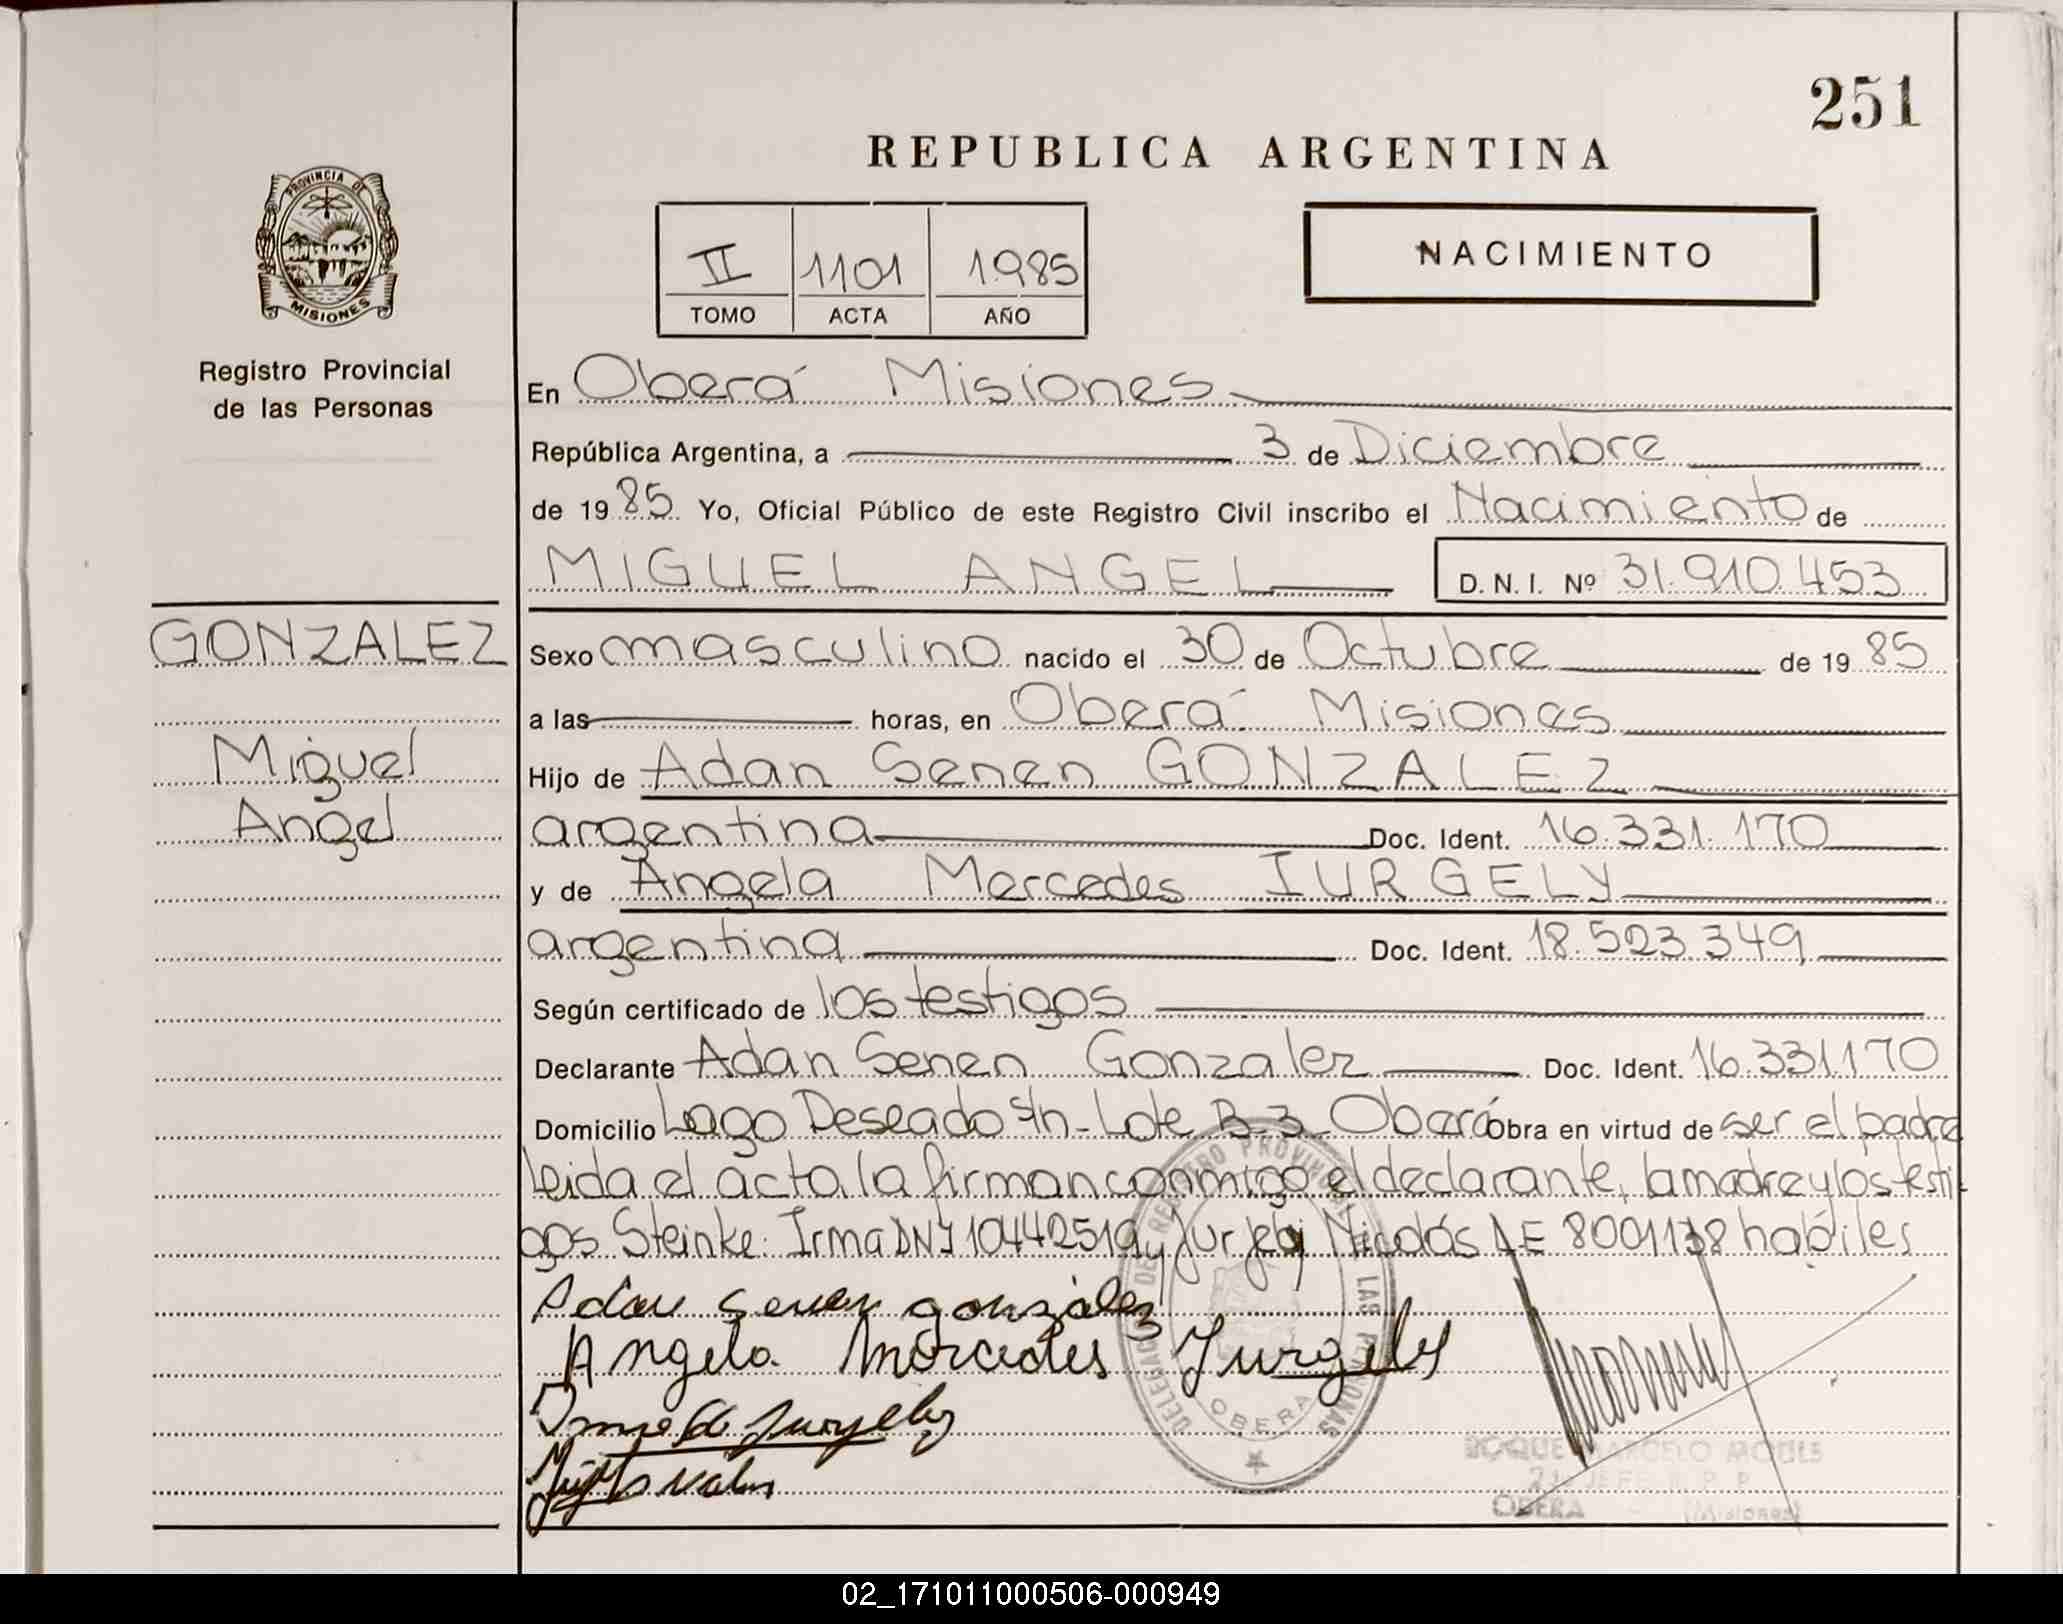 251
REPUBLICA ARGENTINA
PROVINCIA DE
MISIONES
II 1101 1985
TOMO ACTA AÑO
NACIMIENTO
Registro Provincial
de las Personas
En Oberá Misiones
República Argentina, a 3 de Diciembre
de 1985 Yo, Oficial Público de este Registro Civil inscribo el Nacimiento de
MIGUEL ANGEL D. N. I. Nº 31.910.453
GONZALEZ
Miguel
Angel
Sexo masculino nacido el 30 de Octubre de 1985
a las horas, en Oberá Misiones
Hijo de Adan Senen GONZALEZ
argentina Doc. Ident. 16.331.170
y de Angela Mercedes IURGELY
argentina Doc. Ident. 18.523.349
Según certificado de los testigos
Declarante Adan Senen Gonzalez Doc. Ident. 16.331.170
Domicilio Lago Deseado s/n - Lote B-3 Oberá Obra en virtud de ser el padre
Leida el acta, la firman conmigo el declarante, la madre y los testi
gos Steinke Irma DNI 10442519 y Nicolás LE 8001138 habiles
Adan Senen gonzalez
Angela Mercedes Jurgely
DELEGACION DE REGISTRO PROVINCIAL DE LAS PERSONAS
OBERA
ROQUE MARCELO
JEFE R. P. P.
OBERA - (Misiones)
02_171011000506-000949